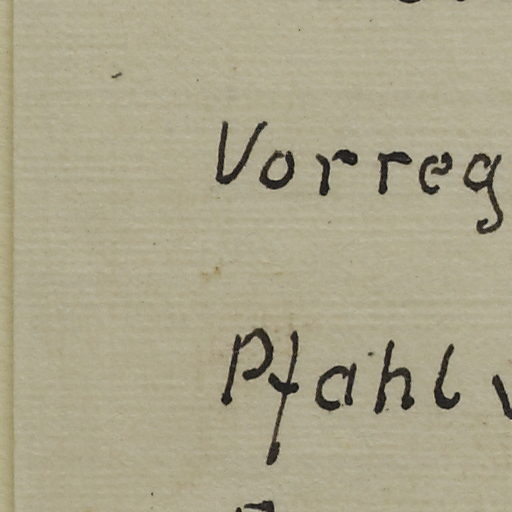 Vorreg
Pfahl